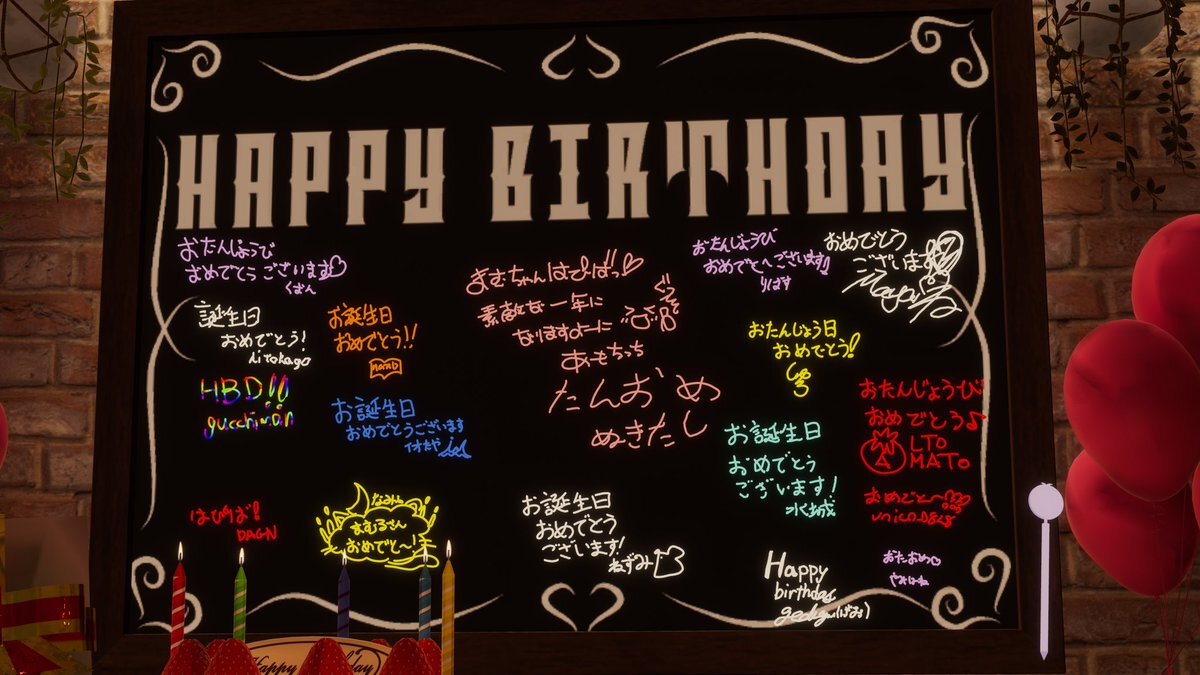 HAPPY BIRTHDAY
おたんじょうび
おめでとうございます♡
くぱん
誕生日
おめでとう!
hitokago
お誕生日
おめでとう!!
HBD!!
お誕生日
おめでとうございます
はぴば!
DAGN
まむるさん
おめでと〜!
まむちゃんはぴばっ♡
素敵な一年に
なりますよーに
あもちっち
たんおめ
ぬきたし
お誕生日
おめでとう
ございます!
ねずみ
おたんじょうび
おめでと〜ございます!
りばす
おめでとう
ございます
おたんじょう日
おめでとう!
しゅろ
お誕生日
おめでとう
ございます!
水城
おたんじょうび
おめでとう♪
LTO
MATO
おめでと〜
unico0828
Happy
birthday
おたおめ
Happy